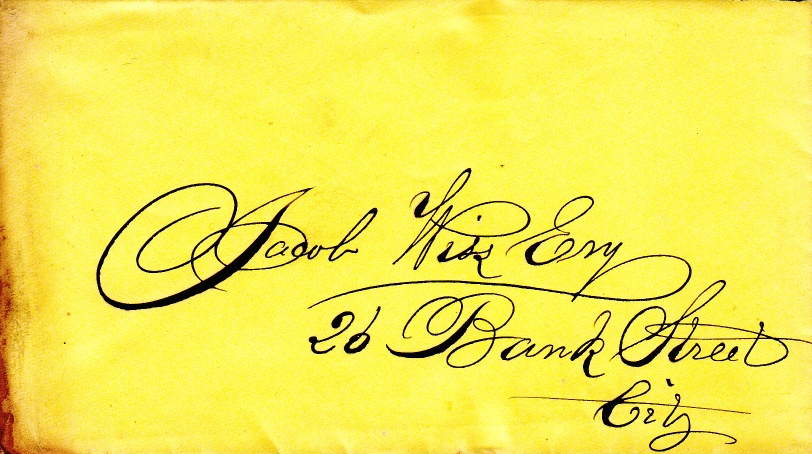 Jacob Wiss Esq
26 Bank Street
City